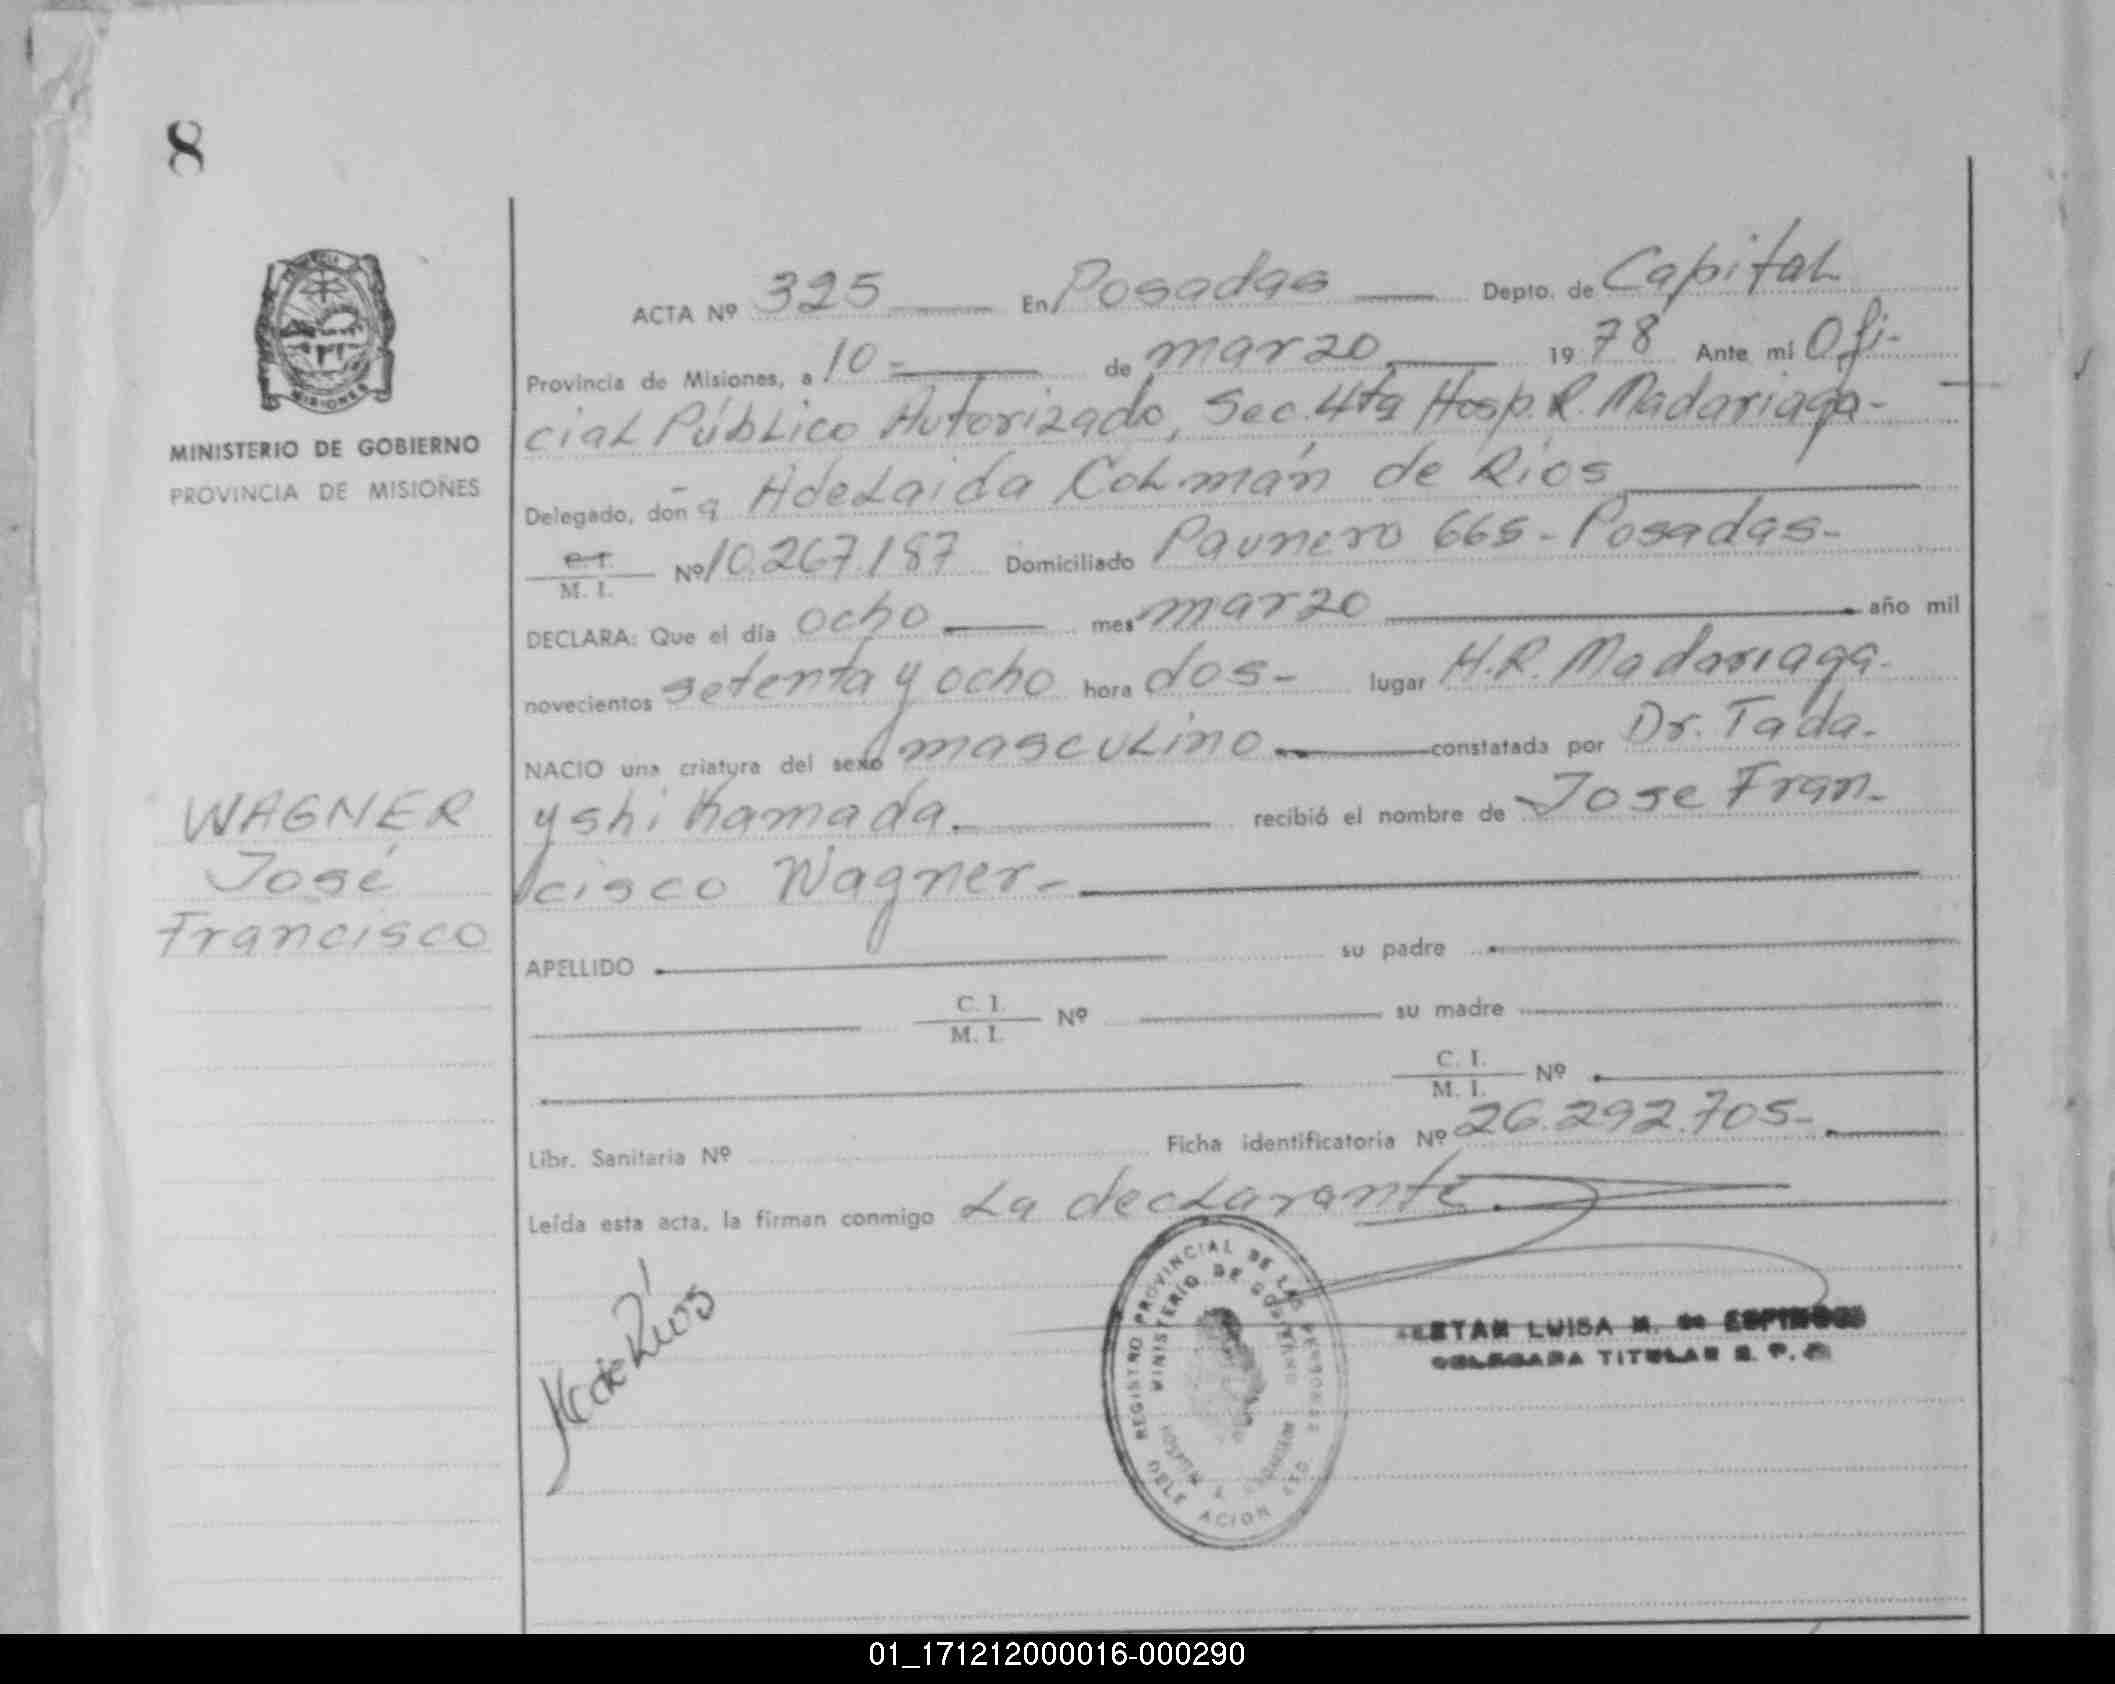 8
MINISTERIO DE GOBIERNO
PROVINCIA DE MISIONES
WAGNER
José
Francisco
ACTA Nº 325 En Posadas Depto. de Capital
Provincia de Misiones, a 10 - de marzo 1978 Ante mi Ofi-
cial Público Autorizado, Sec. 4ta Hosp. R. Madariaga-
Delegado, doña Adelaida Colmán de Ríos
C.I. / M. I. Nº 10.267.187 Domiciliado Paunero 665 - Posadas-
DECLARA: Que el día ocho mes marzo año mil
novecientos setenta y ocho hora dos - lugar H.R. Madariaga.
NACIO una criatura del sexo masculino constatada por Dr. Tada-
yshi Kamada. recibió el nombre de Jose Fran-
cisco Wagner-
APELLIDO su padre
C. I. / M. I. Nº su madre
C. I. / M. I. Nº
Libr. Sanitaria Nº Ficha identificatoria Nº 26.292.705-
Leída esta acta, la firman conmigo La declarante.
de Ríos
REGISTRO PROVINCIAL DE LAS PERSONAS
MINISTERIO DE GOBIERNO
LUISA M. de
DELEGADA TITULAR R. P.
01_171212000016-000290